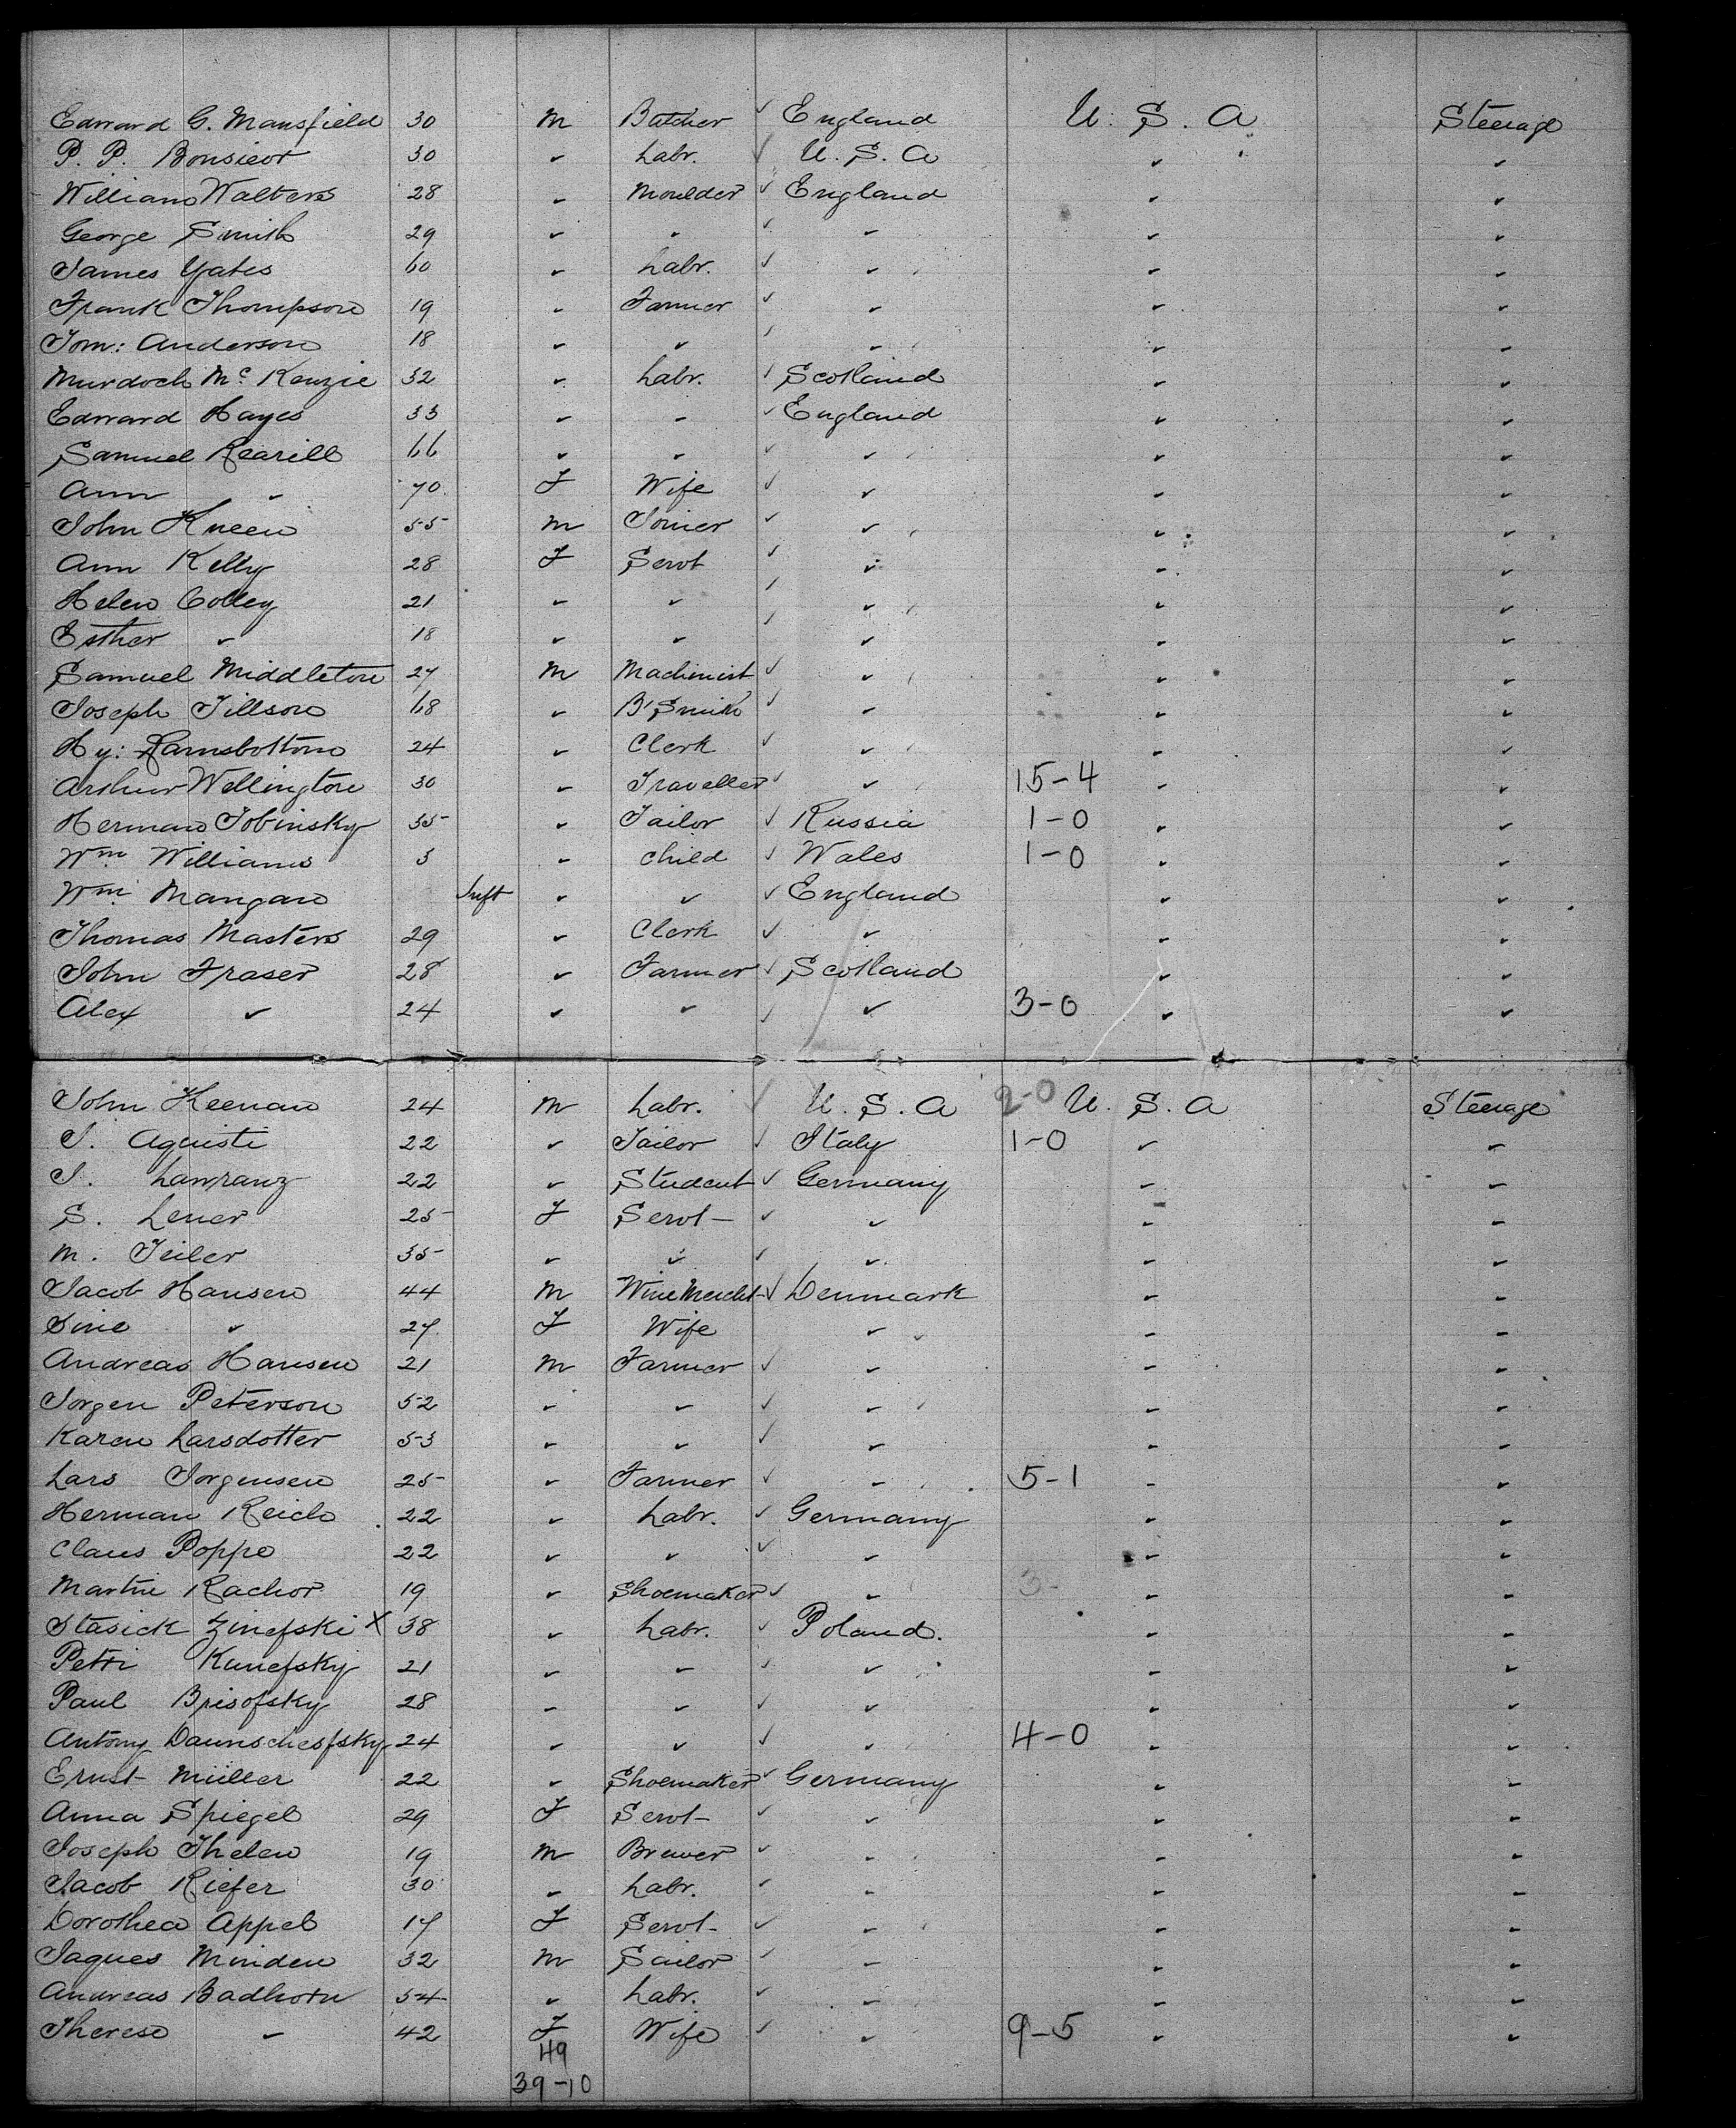 Edward G. Mansfield 30 M Butcher ✓ England U. S. A Steerage
P. P. 30 ✓ Labr. ✓ U. S. A ✓ ✓
William Walters 28 ✓ Moulder ✓ England ✓ ✓
George Smith 29 ✓ ✓ ✓ ✓ ✓ ✓
James Yates 60 ✓ Labr. ✓ ✓ ✓ ✓
Frank Thompson 19 ✓ Farmer ✓ ✓ ✓ ✓
Tom: Anderson 18 ✓ ✓ ✓ ✓ ✓ ✓
Murdoch Mc Kenzie 32 ✓ Labr. ✓ Scotland ✓ ✓
Edward Hayes 33 ✓ ✓ ✓ England ✓ ✓
Samuel Rearill 66 ✓ ✓ ✓ ✓ ✓ ✓
Ann ✓ 70 F Wife ✓ ✓ ✓ ✓
John Kneen 55 M Joiner ✓ ✓ ✓ ✓
Ann Kelly 28 F Servt ✓ ✓ ✓ ✓
Helen Colley 21 ✓ ✓ ✓ ✓ ✓ ✓
Esther ✓ 18 ✓ ✓ ✓ ✓ ✓ ✓
Samuel Middleton 27 M Machinist ✓ ✓ ✓ ✓
Joseph Tillson 68 ✓ B'Smith ✓ ✓ ✓ ✓
Hy: Ramsbottom 24 ✓ Clerk ✓ ✓ ✓ ✓
Arthur Wellington 30 ✓ Traveller ✓ ✓ 15-4 ✓ ✓
Herman Tobinsky 35 ✓ Tailor ✓ Russia 1-0 ✓ ✓
Wm Williams 3 ✓ Child ✓ Wales 1-0 ✓ ✓
Wm Mangan Inft ✓ ✓ ✓ England ✓ ✓
Thomas Masters 29 ✓ Clerk ✓ ✓ ✓ ✓
John Fraser 28 ✓ Farmer ✓ Scotland ✓ ✓
Alex ✓ 24 ✓ ✓ ✓ ✓ 3-0 ✓ ✓
John Keenan 24 M Labr. ✓ U. S. A 2-0 U. S. A Steerage
Aquisti 22 ✓ Tailor ✓ Italy 1-0 ✓ ✓
22 ✓ Student ✓ Germany ✓ ✓
S. Lener 25 F Servt ✓ ✓ ✓ ✓
M. Teiler 35 ✓ ✓ ✓ ✓ ✓ ✓
Jacob Hansen 44 M Wine Mercht ✓ Denmark ✓ ✓
Sine ✓ 27 F Wife ✓ ✓ ✓
Andreas Hansen 21 M Farmer ✓ ✓ ✓ ✓
Jorgen Peterson 52 ✓ ✓ ✓ ✓ ✓ ✓
Karen Larsdotter 53 ✓ ✓ ✓ ✓ ✓ ✓
Lars Jorgensen 25 ✓ Farmer ✓ ✓ 5-1 ✓ ✓
Herman Reich 22 ✓ Labr. ✓ Germany ✓ ✓
Claus Poppe 22 ✓ ✓ ✓ ✓ ✓ ✓
Martin Rachor 19 ✓ Shoemaker ✓ ✓ 3- ✓ ✓
Stasick Zinefski X 38 ✓ Labr. ✓ Poland. ✓ ✓
Petri Kunefsky 21 ✓ ✓ ✓ ✓ ✓ ✓
Paul Brisofsky 28 ✓ ✓ ✓ ✓ ✓ ✓
Antony Daunschesfsky 24 ✓ ✓ ✓ ✓ 4-0 ✓ ✓
Ernst Müller 22 ✓ Shoemaker ✓ Germany ✓ ✓
Anna Spiegel 29 F Servt ✓ ✓ ✓ ✓
Joseph Thelen 19 M Brewer ✓ ✓ ✓ ✓
Jacob Kiefer 30 ✓ Labr. ✓ ✓ ✓ ✓
Dorothea Appel 17 F Servt ✓ ✓ ✓ ✓
Jaques Minden 32 M Sailor ✓ ✓ ✓ ✓
Andreas Badhorn 54 ✓ Labr. ✓ ✓ ✓ ✓
Therese ✓ 42 F Wife ✓ ✓ 9-5 ✓ ✓
49
39-10